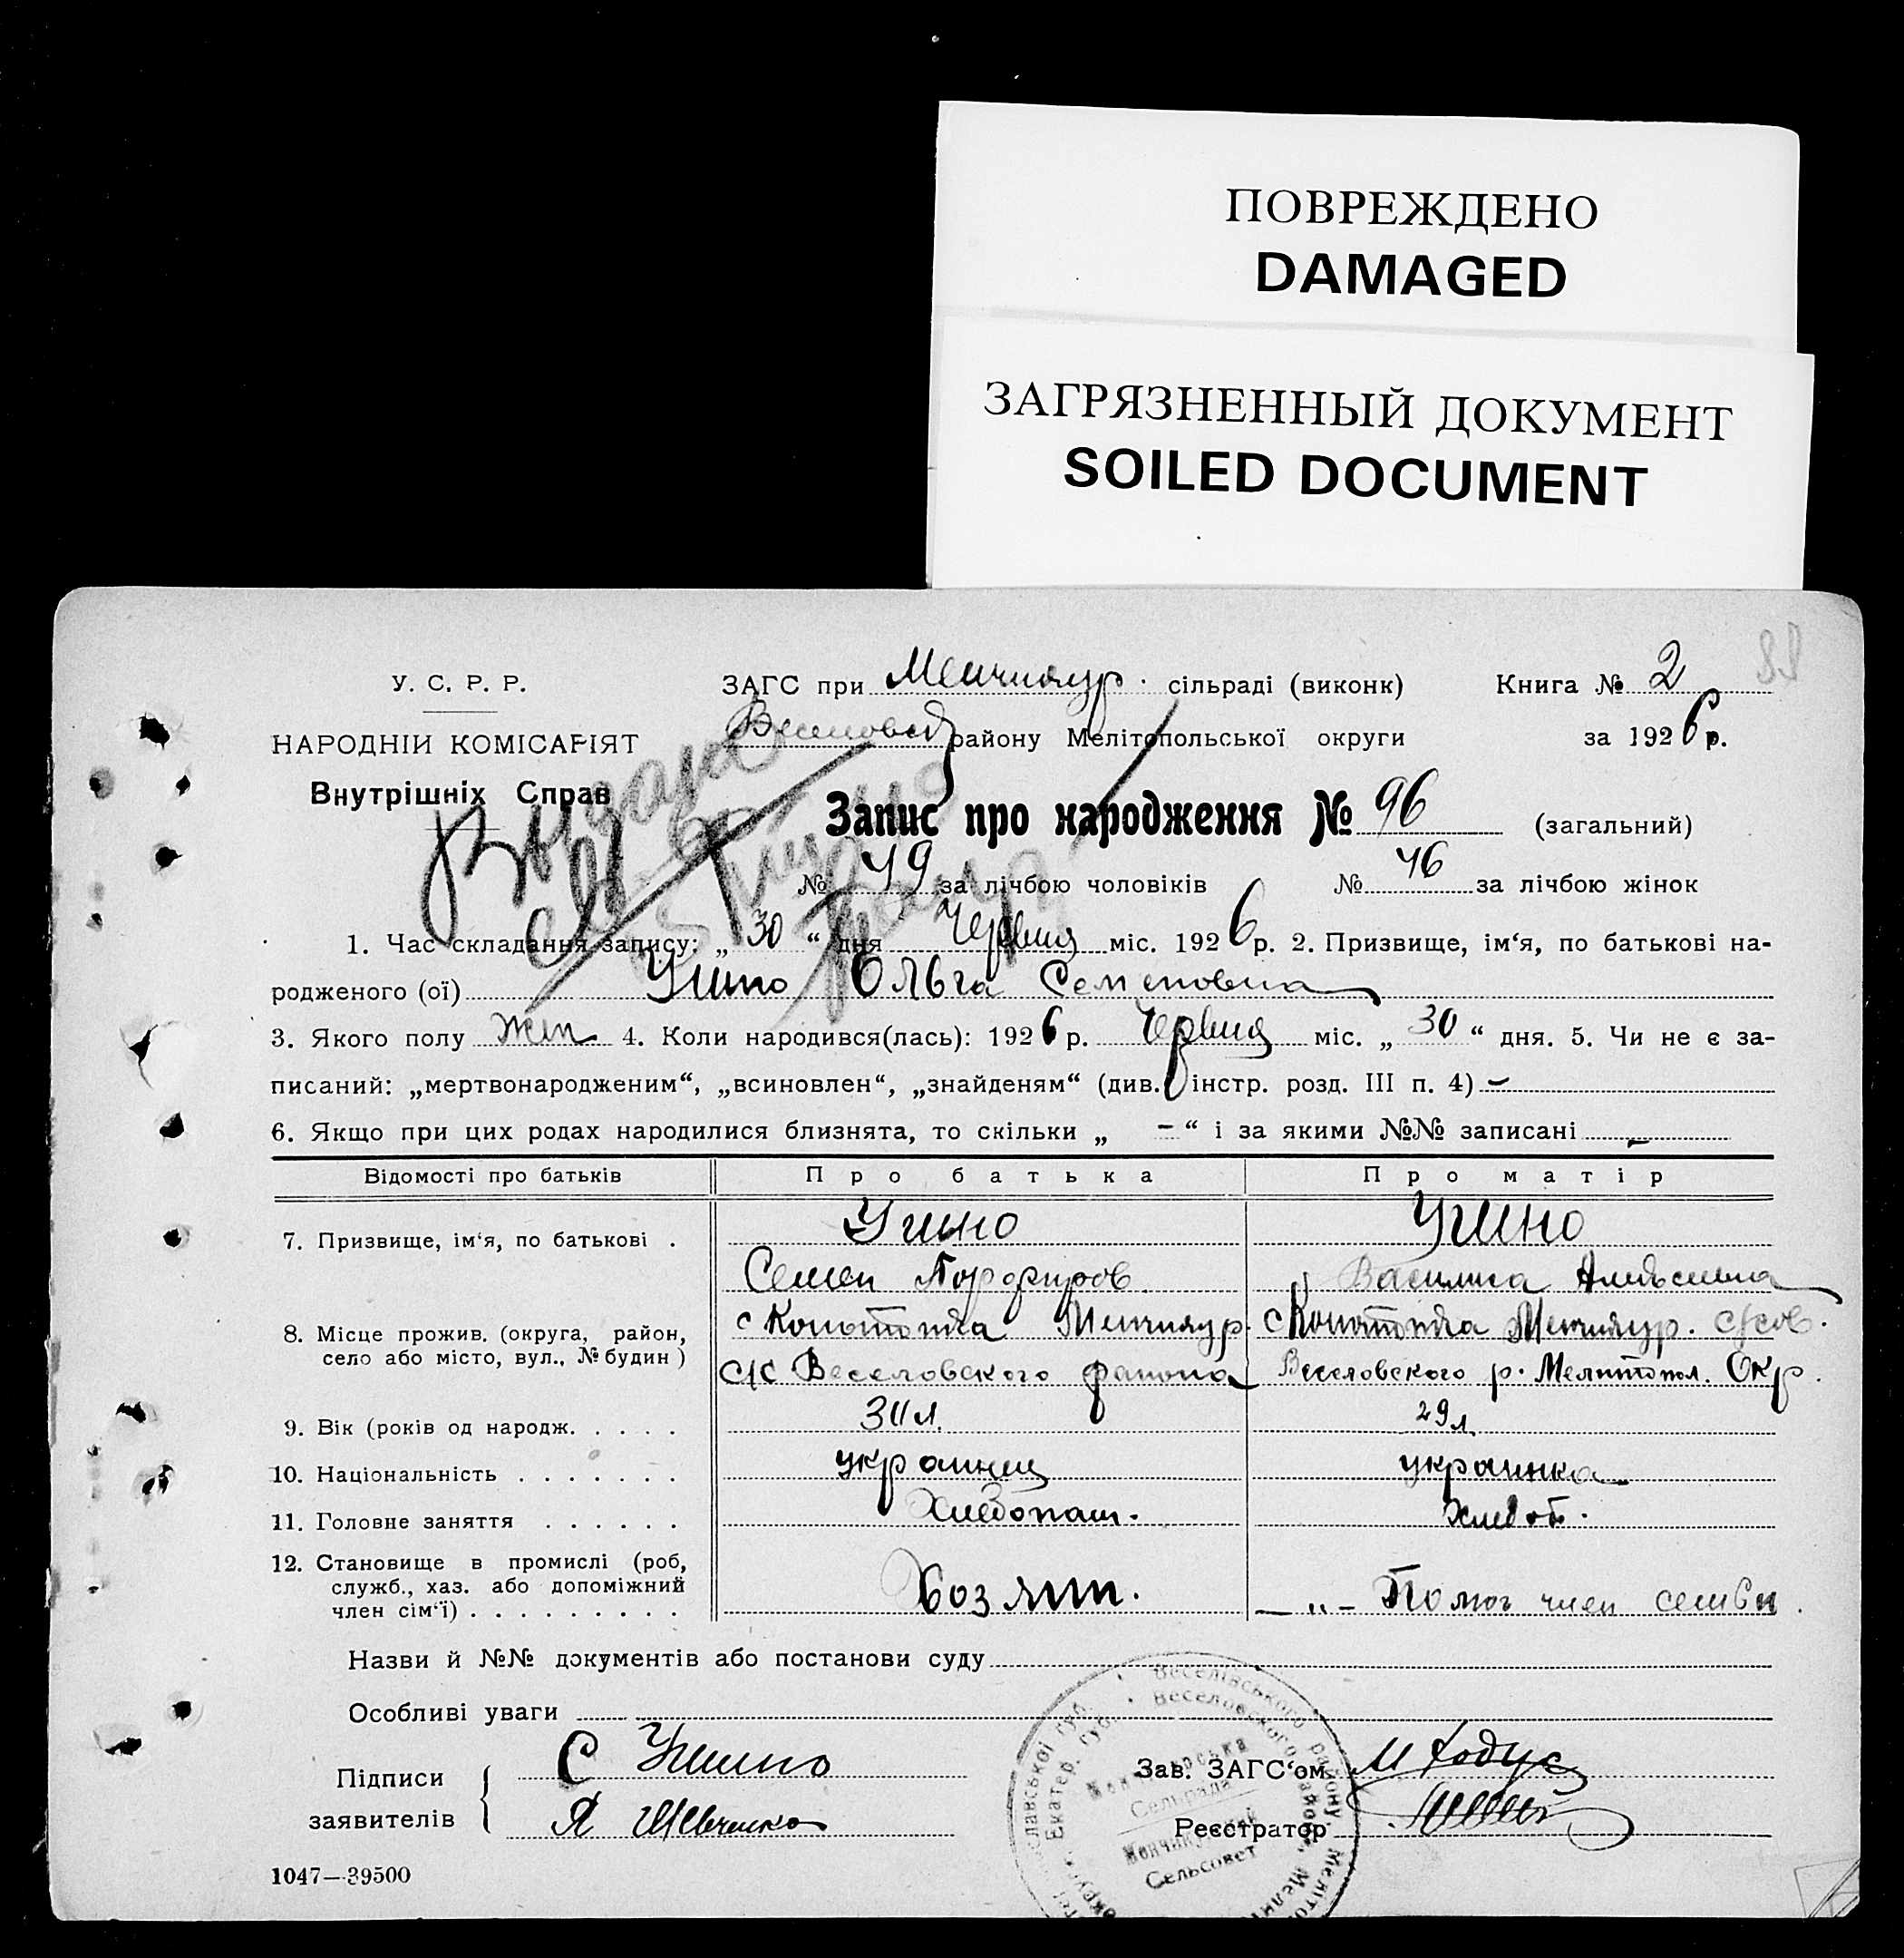 ПОВРЕЖДЕНО
DAMAGED
ЗАГРЯЗНЕННЫЙ ДОКУМЕНТ
SOILED DOCUMENT
88
У. С. Р. Р.
ЗАГС при Менчикур. сільраді (виконк)
Книга № 2
НАРОДНІЙ КОМІСАРІЯТ
району Мелітопольської округи
за 1926 р.
Внутрішніх Справ
Запис про народження № 96 (загальний)
№ 49 за лічбою чоловіків
№ 46 за лічбою жінок
1. Час складання запису: „30“ дня Червня міс. 1926 р. 2. Призвище, ім‘я, по батькові на-
родженого (ої) Ольга Семеновна
3. Якого полу жін 4. Коли народився(лась): 1926 р. Червня міс. „30“ дня. 5. Чи не є за-
писаний: „мертвонародженим“, „всиновлен“, „знайденям“ (див. інстр. розд. III п. 4) –
6. Якщо при цих родах народилися близнята, то скільки „ – “ і за якими №№ записані –
Відомості про батьків
Про батька
Про матір
7. Призвище, ім‘я, по батькові .
Семен Порфиров
Василиса
8. Місце прожив. (округа, район,
село або місто, вул., № будин )
с Конотопка Менчикур.
с/с Веселовского района
с Конотопка Менчикур. с/сов.
Веселовского р. Мелитопол. Окр.
9. Вік (років од народж. . . . .
29 л
10. Національність . . . . . . .
украинец
украинка
11. Головне заняття . . . . . .
Хлебопаш.
Хлебоб.
12. Становище в промислі (роб,
служб., хаз. або допоміжний
член сім‘ї) . . . . . . . . .
Хозяин.
– „ – Помог член семьи.
Назви й №№ документів або постанови суду
Особливі уваги
Підписи
заявителів
С
Я Шевченко
Зав. ЗАГС‘ом
Реєстратор
Веселівського району, Меліто
Веселовского
Екатер. губ.
Сельрада
Сельсовет
1047—39500